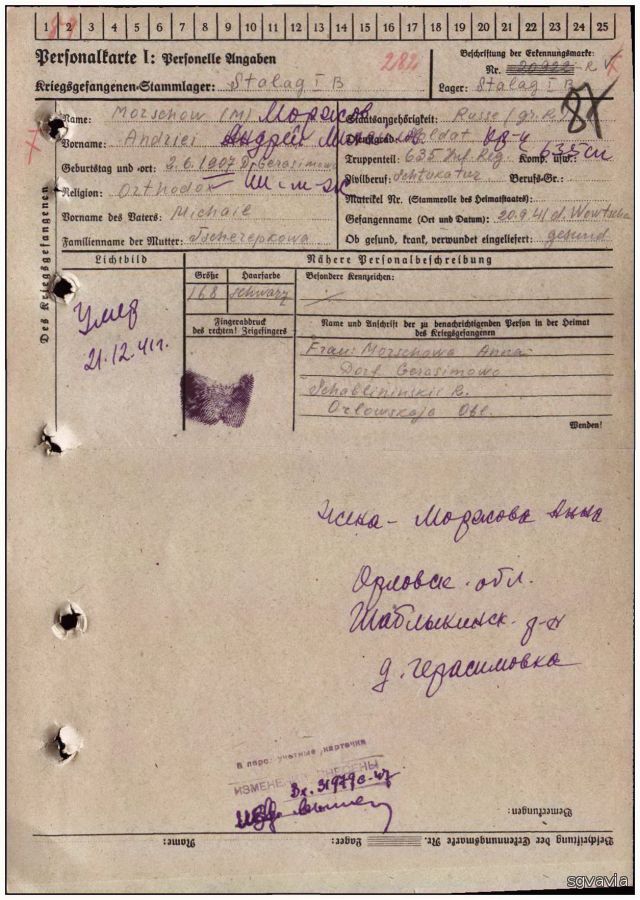 1 2 3 4 5 6 7 8 9 10 11 12 13 14 15 16 17 18 19 20 21 22 23 24 25
Personalkarte I: Personelle Angaben
282
Beschriftung der Erkennungsmarke:
Nr. R
Kriegsgefangenen-Stammlager: Stalag I B
Lager: Stalag I B
Des Kriegsgefangenen
Name: Morschow (M) Моржов
Staatsangehörigkeit: Russe (gr. R.)
Vorname: Andriei Андрей
Dienstgrad: Soldat кр-ц
Geburtstag und -ort: 2.6.1907 D. Gerasimowo
Truppenteil: 635 Inf. Reg. Komp. usw.: 635 сп
Religion: Orthodox
Zivilberuf: Berufs-Gr.:
Vorname des Vaters: Michail
Matrikel Nr. (Stammrolle des Heimatstaates):
Gefangenname (Ort und Datum): 20.9.41
Familienname der Mutter: Tscherepkowa
Ob gesund, krank, verwundet eingeliefert: gesund
Lichtbild
Nähere Personalbeschreibung
Größe
Haarfarbe
Besondere Kennzeichen:
168
schwarz
Умер
21.12.41г.
Fingerabdruck
des rechten! Zeigefingers
Name und Anschrift der zu benachrichtigenden Person in der Heimat
des Kriegsgefangenen
Frau: Morschowa Anna
Dorf Gerasimowo
Schablininskii R.
Orlowskaja Obl.
Wenden!
Жена - Моржова Анна
Орловск. обл.
Шаблыкинск. р-н
д. Герасимовка
В перс. учетные карточки
ИЗМЕНЕНИЯ ВНЕСЕНЫ
Вх. 31979с-47
Bemerkungen:
Beschriftung der Erkennungsmarke Nr.
Lager:
Name:
sgvavia